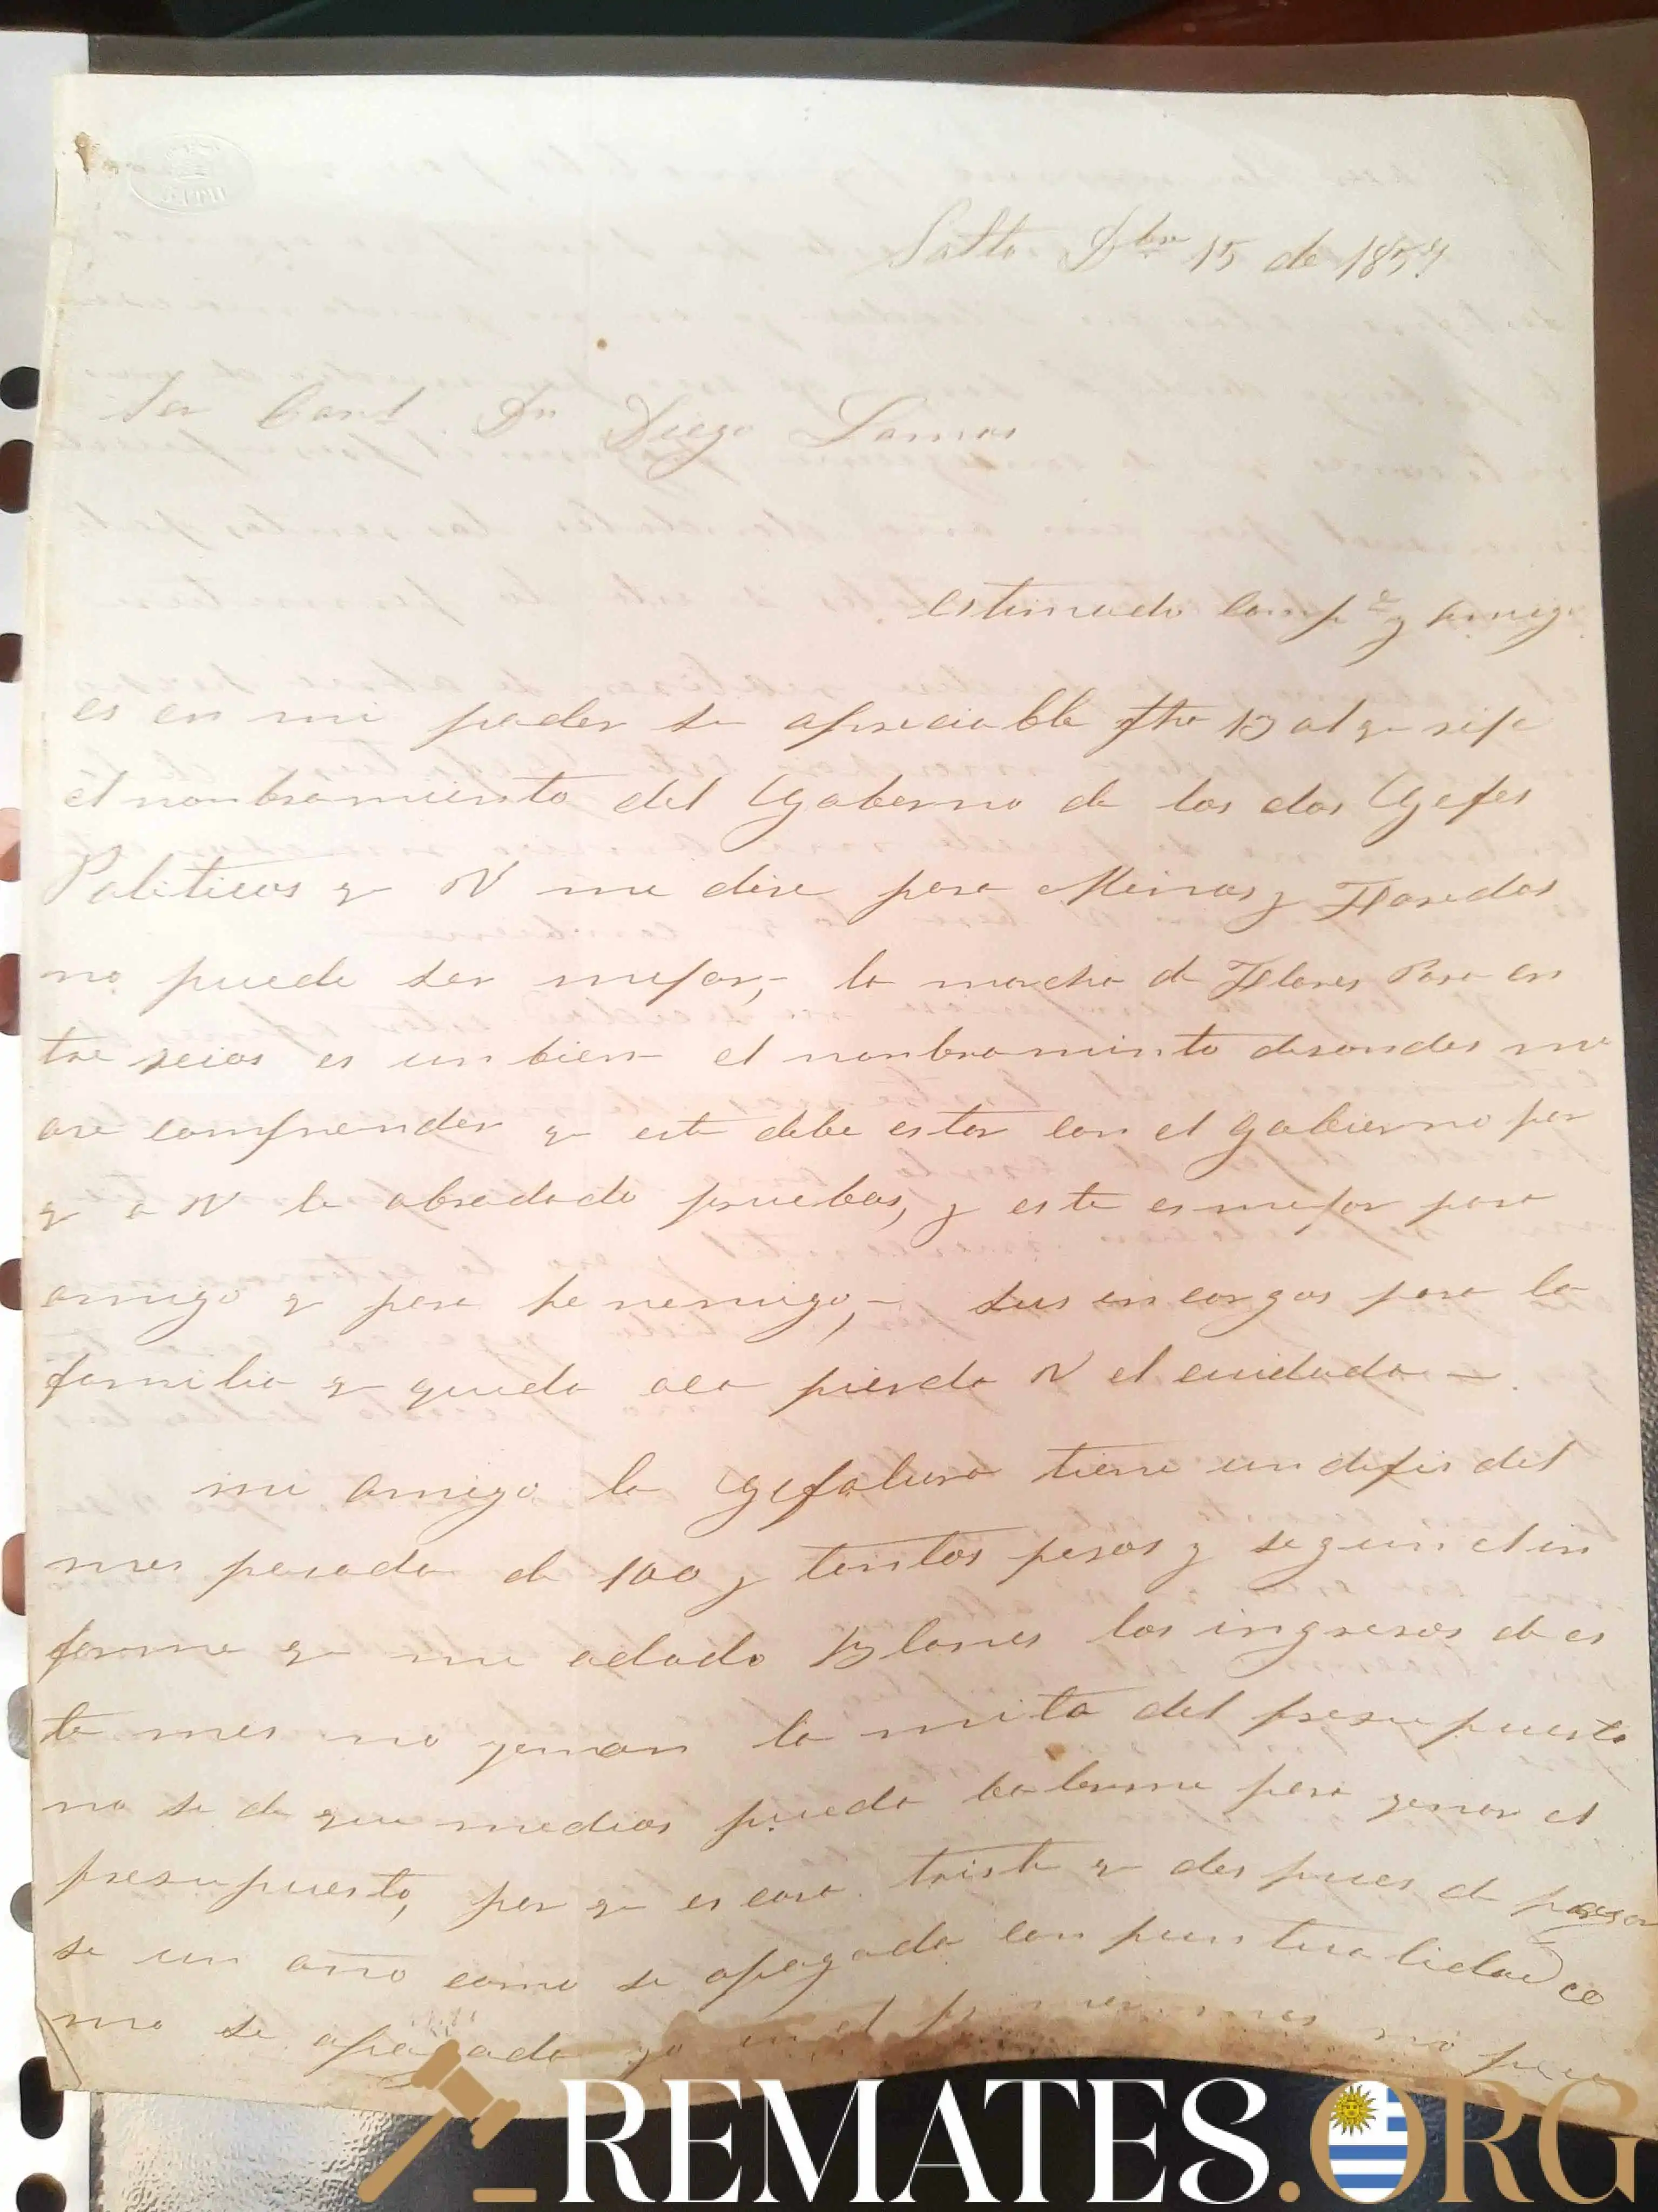 Salto Dbre 15 de 1857
Sor Corl Dn Diego Lamas
Estimado Comp.e y Amigo
es en mi poder su apreciable fha 13 al q
el nonbramiento del Gobierno de los dos Gefes
Politicos q V me dise para Minas y
no puede ser mejor, la marcha de Flores Para en
tre rrios es un bien el nonbramiento desondes me
ase comprender q este debe estar con el gobierno por
q a V le abradado pruebas, y este es mejor para
amigo q para henemigo, sus encargos para la
familia q queda aca pierda V el cuidado
mi amigo la Gefatura tiene un defis del
mes pasado de 100 y tantos pesos y segun el in
forme q me adado Blanes los ingresos de es
te mes no yenan la mita del presupuesto
no se de que medios pueda balerme para yenar el
presupuesto, por q es cosa triste q des pues de pasar
se un año como se apagado con puntualidad co
mo se apagado ya en el mes no pue
REMATES.ORG